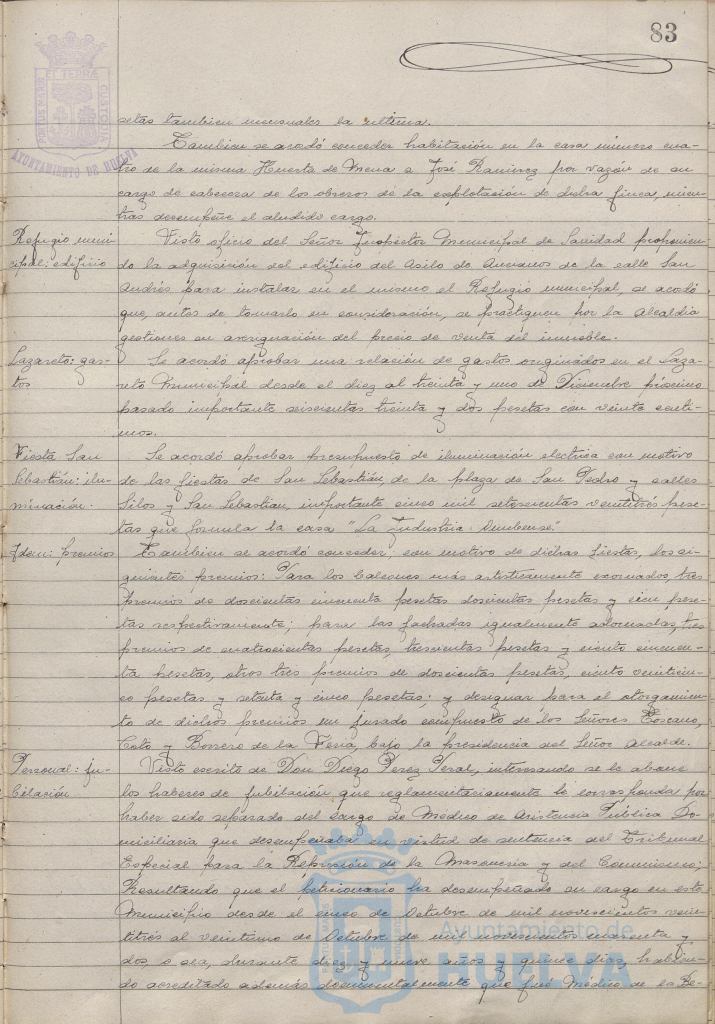 83
ET TERRÆ
PORTUS MARIS
CUSTODIA
AYUNTAMIENTO DE HUELVA
setas tambien mensuales la ultima.
Tambien se acordó conceder habitación en la casa número cua-
tro de la misma Huerta de Mena a José Ramirez por razón de su
cargo de cabecera de los obreros de la explotación de dicha finca, mien-
tras desempeñe el aludido cargo.
Refugio muni-
cipal: edificio
Visto oficio del Señor Inspector Municipal de Sanidad proponien-
do la adquisición del edificio del Asilo de Ancianos de la calle San
Andrés para instalar en el mismo el Refugio municipal, se acordó
que, antes de tomarlo en consideración, se practiquen por la Alcaldia
gestiones en averiguación del precio de venta del inmueble.
Lazareto: gas-
tos
Se acordó aprobar una relación de gastos originados en el Laza-
reto Municipal desde el diez al treinta y uno de Diciembre próximo
pasado importante seiscientas treinta y dos pesetas con veinte centi-
mos.
Fiesta San
Sebastián: ilu-
minación.
Se acordó aprobar presupuesto de iluminación electrica con motivo
de las fiestas de San Sebastián, de la plaza de San Pedro y calles
Silos y San Sebastian, importante cinco mil setescientas veintitrés pese-
tas que formula la casa "La Industria Onubense".
Idem: premios
Tambien se acordó conceder, con motivo de dichas fiestas, los si-
guientes premios: Para los balcones más artisticamente exornados, tres
premios de doscientas cincuenta pesetas doscientas pesetas y cien pese-
tas respectivamente; para las fachadas igualmente adornadas, tres
premios de cuatrocientas pesetas, trescientas pesetas y ciento cincuen-
ta pesetas, otros tres premios de doscientas pesetas, ciento veinticin-
co pesetas y setenta y cinco pesetas; y designar para el otorgamien-
to de dichos premios un jurado compuesto de los Señores Toscano,
Coto y Borrero de la Feria, bajo la presidencia del Señor Alcalde.
Personal: ju-
bilación
Visto escrito de Don Diego Perez Peral, interesando se le abone
los haberes de jubilación que reglamentariamente le corresponda por
haber sido separado del cargo de Médico de Asistencia Pública Do-
miciliaria que desempeñaba en virtud de sentencia del Tribunal
Especial para la Represión de la Masoneria y del Comunismo;
Resultando que el peticionario ha desempeñado su cargo en este
Municipio desde el cinco de Octubre de mil novescientos vein-
titrés al veintiuno de Octubre de mil novescientos cuarenta y
dos, o sea, durante diez y nueve años y quince dias, habien-
do acreditado además documentalmente que fué Médico de la Be-
Ayuntamiento de
HUELVA